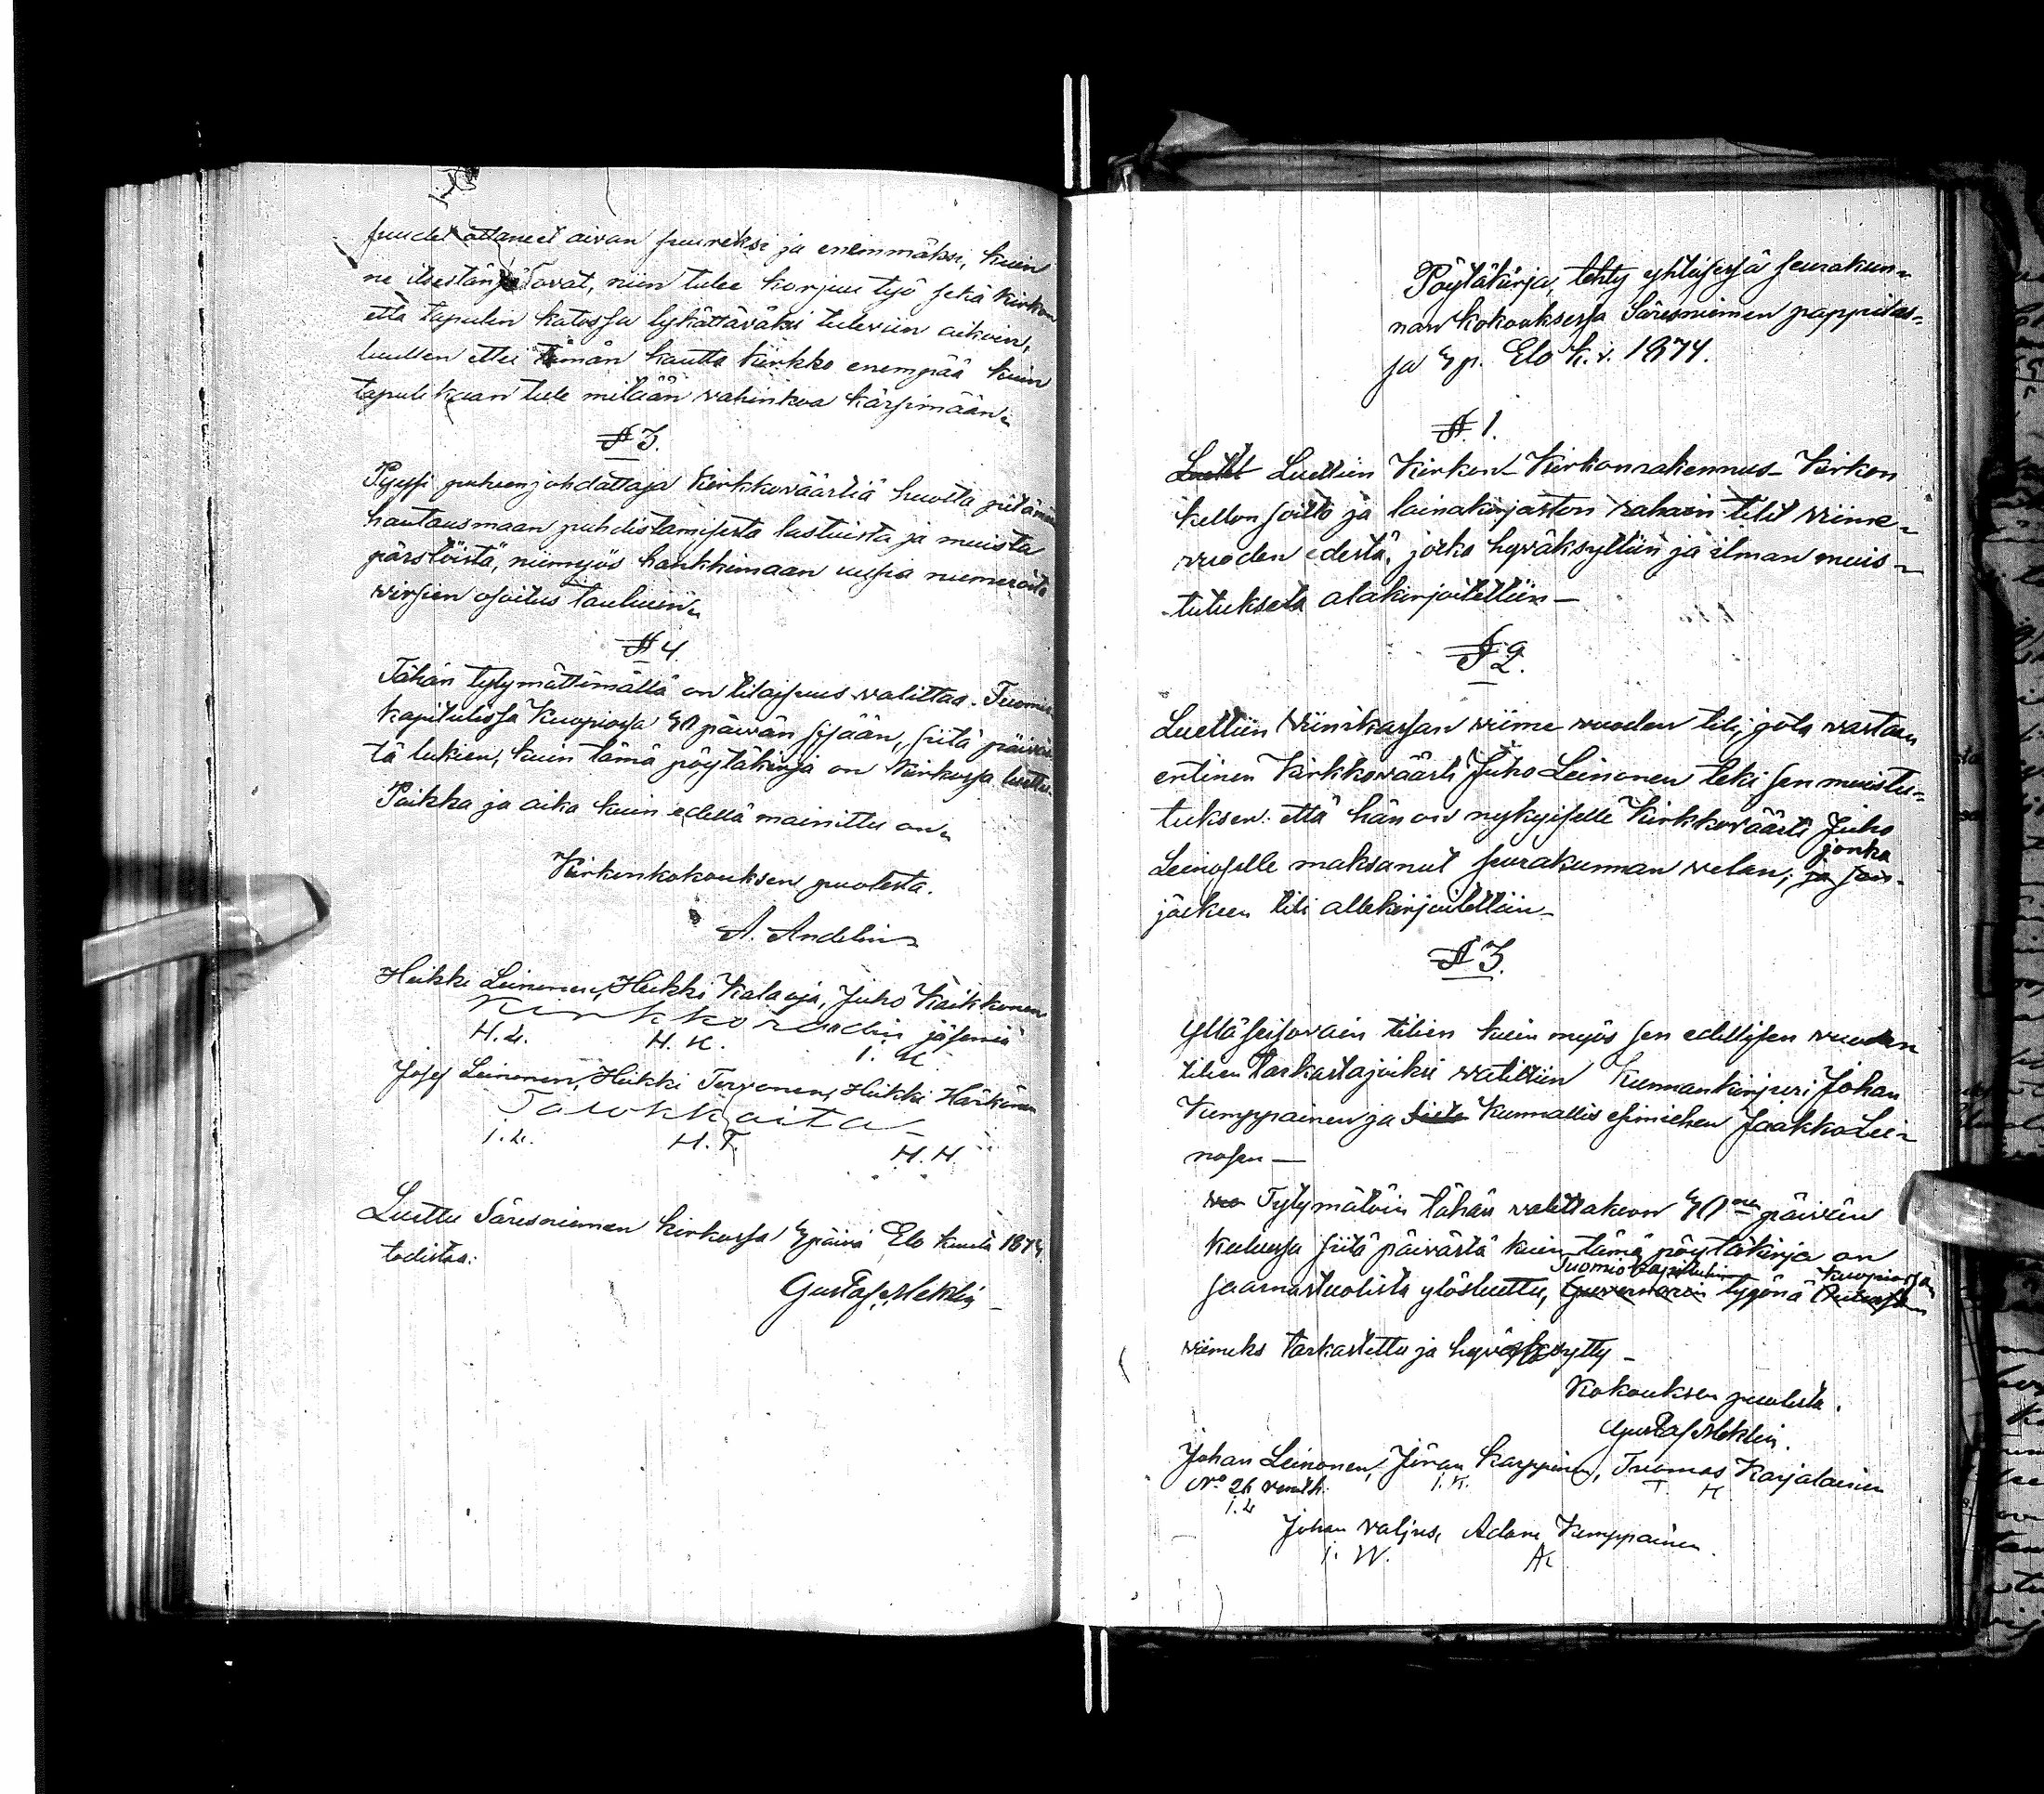 suudet ottaneet aivan suureksi ja enemmäksi, kuin
ne itsestänsä ovat, niin tulee korjuu työ sekä kirkon
että tapulin katossa lykättäväksi tuleviin aikoin,
luullen ettei tämän kautta kirkko enempää kuin
tapulikaan tule mitään vahinkoa kärsimään.
§ 3.
Pyysi puheenjohdattaja Kirkkoväärtiä huolta pitämään
hautausmaan puhdistamisesta lastuista ja muista
pärstöistä, niimyös hankkimaan uusia numeroita
virsien osoitus tauluun.
§ 4.
Tähän tytymättömällä on tilaisuus valittaa Tuomio-
kapitulissa Kuopiossa 30 päivän sisään, siitä päiväs-
tä lukien, kuin tämä pöytäkirja on kirkossa luettu.
Paikka ja aika kuin edellä mainittu on.
Kirkonkokouksen puolesta.
A. Andelin
Heikki Leinonen, Heikki Kalaoja, Juho Kaikkonen
Kirkkoraadin jäseniä
H.L. H.K. I. K
Josef Leinonen, Heikki Tervonen, Heikki Härkönen
Talokkaita
I.L. H.T. H.H.
Luettu Säresniemen kirkossa päivä Elo kuuta 1874
todistaa:
Gustaf Meklin
Pöytäkirja, tehty yhteisessä seurakun-
nan kokouksessa Säresniemen pappilas-
sa p. Elo k. v. 1874.
§ 1.
Luetti Luettiin Kirkon- Kirkonrakennus- Kirkon
kellon soitto ja lainakirjaston rahain tilit viime-
vuoden edestä, jotka hyväksyttiin ja ilman muis-
tutuksetta alakirjoitettiin —
§ 2.
Luettiin Viinikassan viime vuoden tili, jota vastaan
entinen Kirkkoväärti Juho Leinonen teki sen muistu-
tuksen: että hän on nykyiselle Kirkkoväärti Juho
jonka
Leinoselle maksanut seurakunnan velan; ja
jäikeen tili allekirjoitettiin —
§ 3.
Ylläseisovain tilien kuin myös sen edellisen vuoden
tilien tarkastajoiksi valittiin Kunnankirjuri Johan
Kemppainen ja Kunnallis esimiehen Jaakko Lei-
nosen —
Tytymätöin tähän valittakoon 30nen päivän
kuluessa siitä päivästä kuin tämä pöytäkirja on
Tuomiokapitulin Kuopiossa
saarnastuolista ylösluettu, Guvernörin tygönä
viimeks tarkastettu ja hyväksytty —
Kokouksen puolesta.
Gustaf Meklin.
Johan Leinonen, Jöran Karppinen, Tuomas Karjalainen
No 26
I.L I.K. T K
Johan Valjus, Adam Kemppainen.
I. W. AK